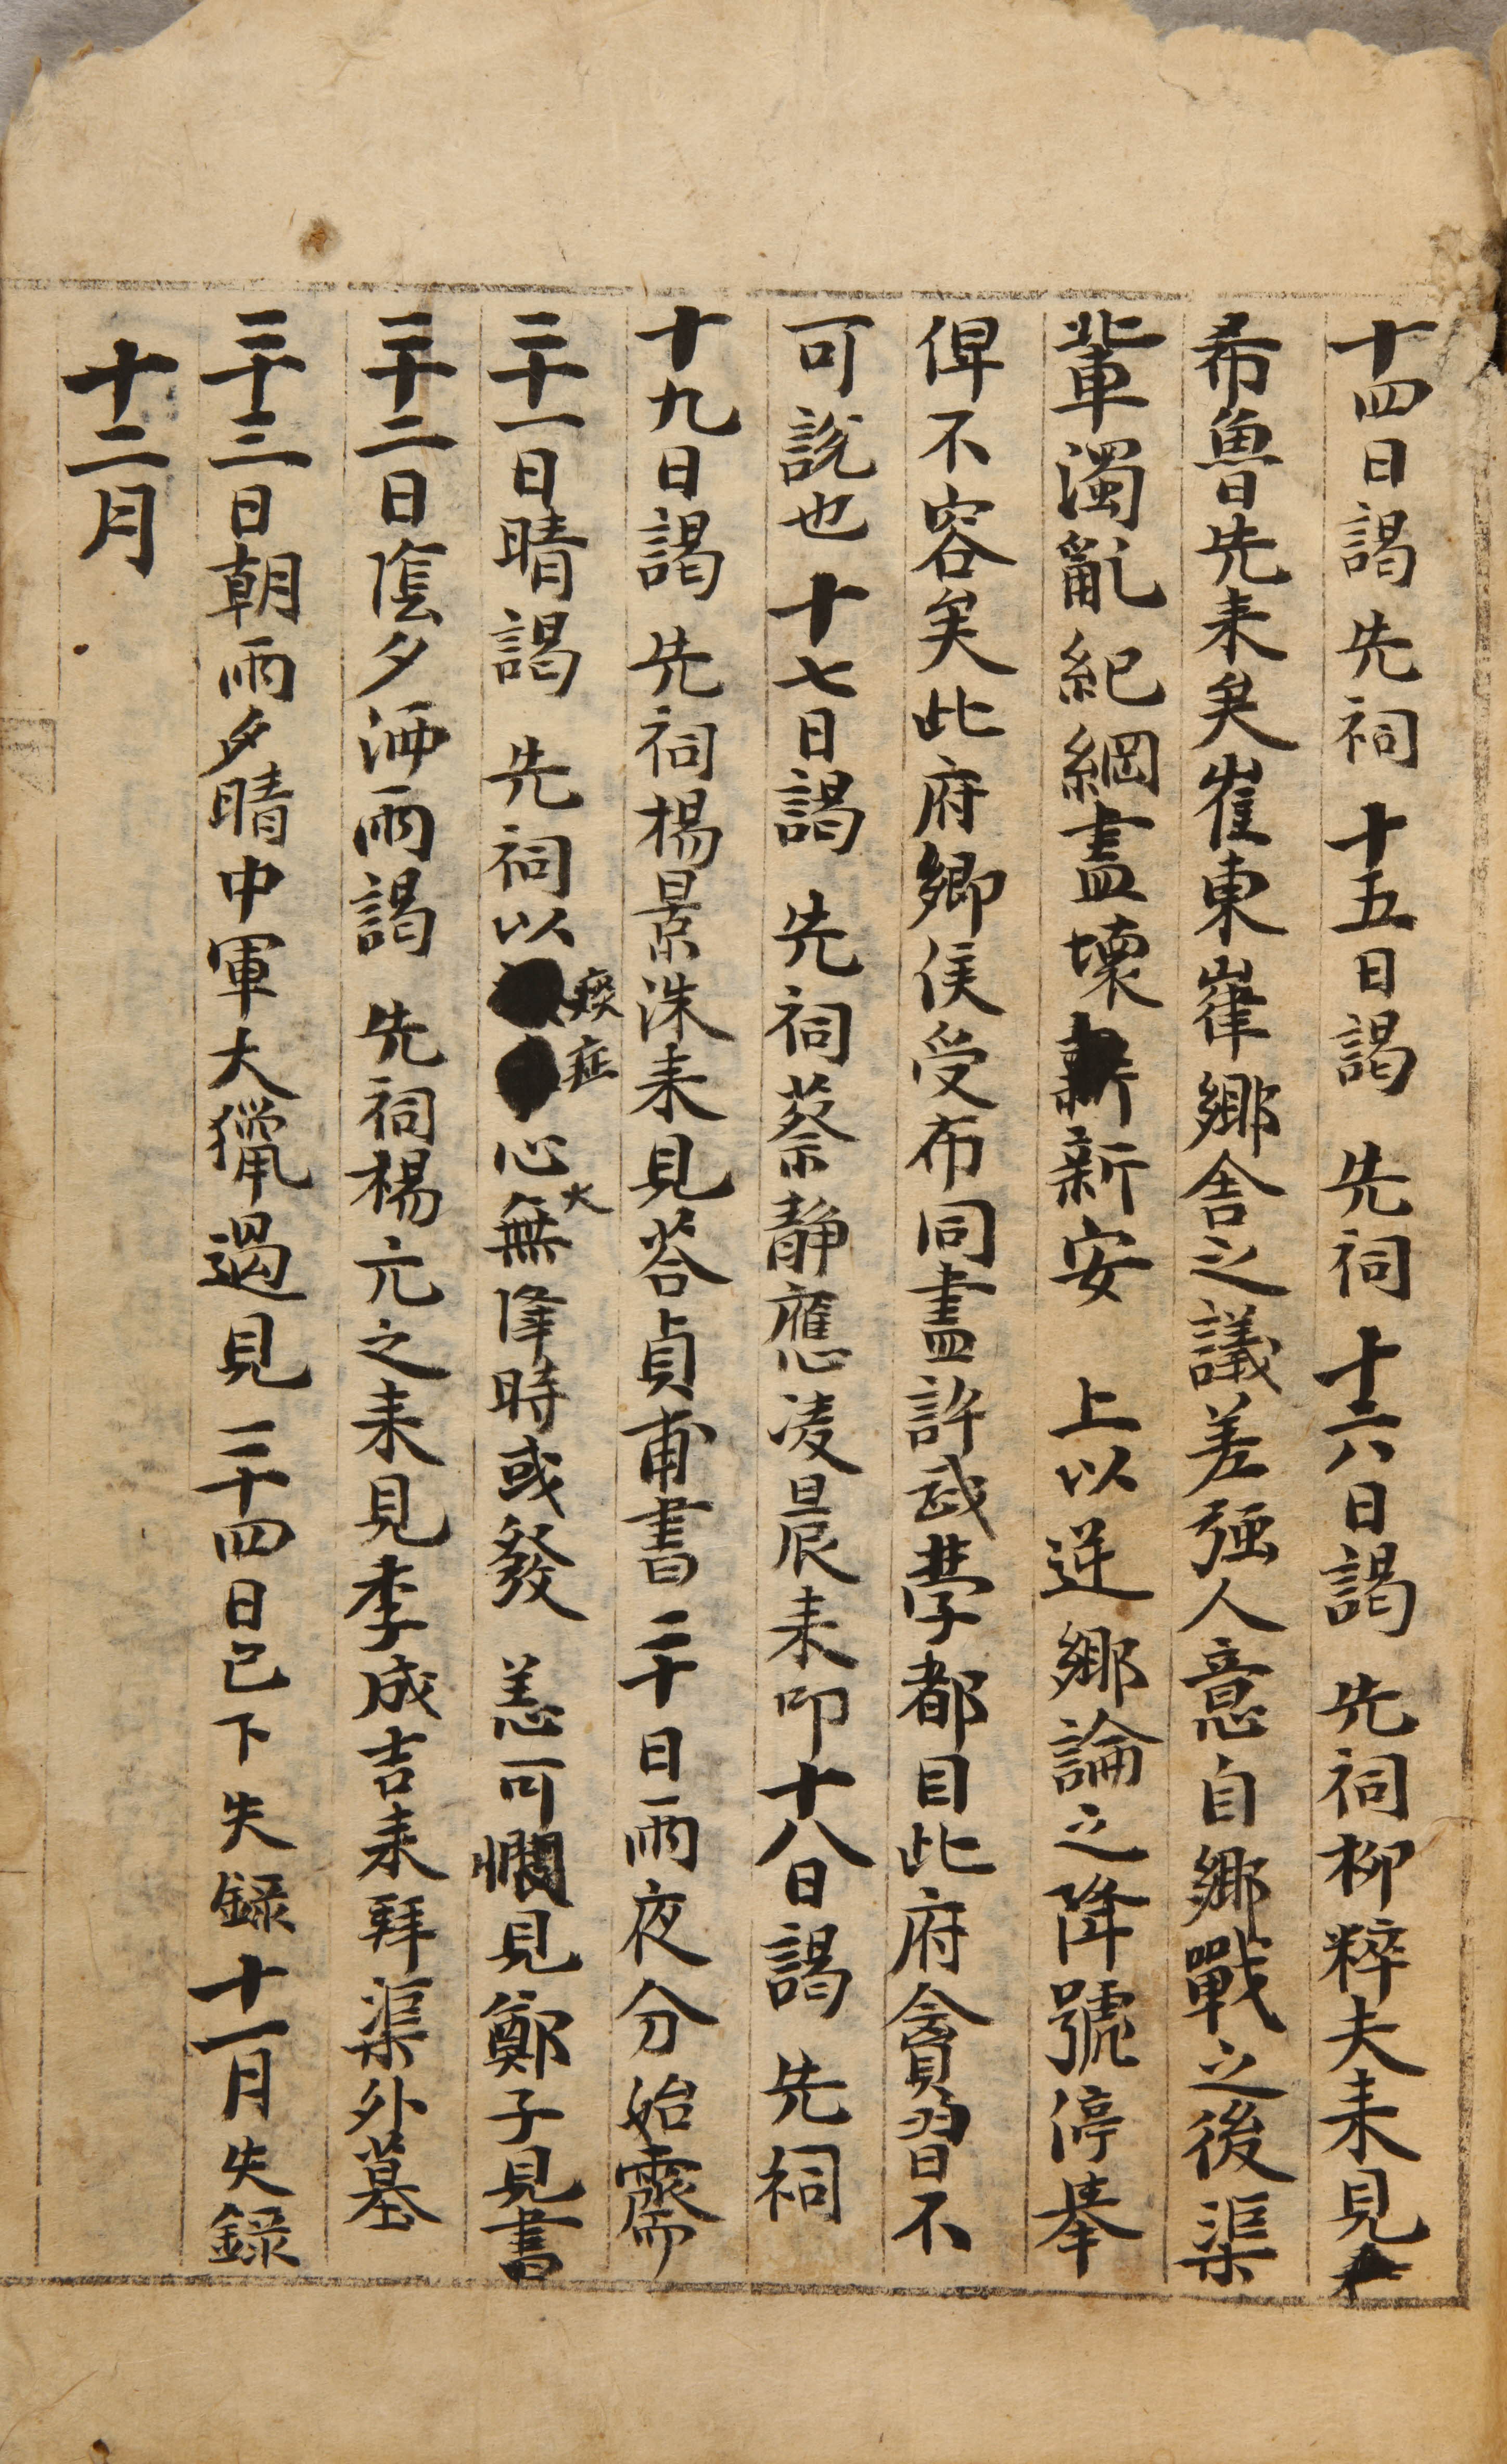 十四日謁 先祠 十五日謁 先祠 十六日謁 先祠柳粹夫来見
希魯曰先来矣崔東崔鄉舍之議差强人意自鄉戰之後渠
輩濁亂紀綱盡壞新安 上以逆鄉論之降號停擧
俾不容矣此府鄉侯受布同盡許武學都目此府貪習不
可說也 十七日謁 先祠蔡靜應凌晨来叩十八日謁 先祠
十九日謁 先祠楊景洙来見答貞甫書 二十日雨夜分始霽
二十一日晴謁 先祠以痰症心大無降時或發 恙可憫見鄭子見書
二十二日陰夕洒雨謁 先祠楊亢之来見李成吉来拜渠外墓
二十三日朝雨夕晴中軍大獵過見 二十四日已下失録十一月失録
十二月